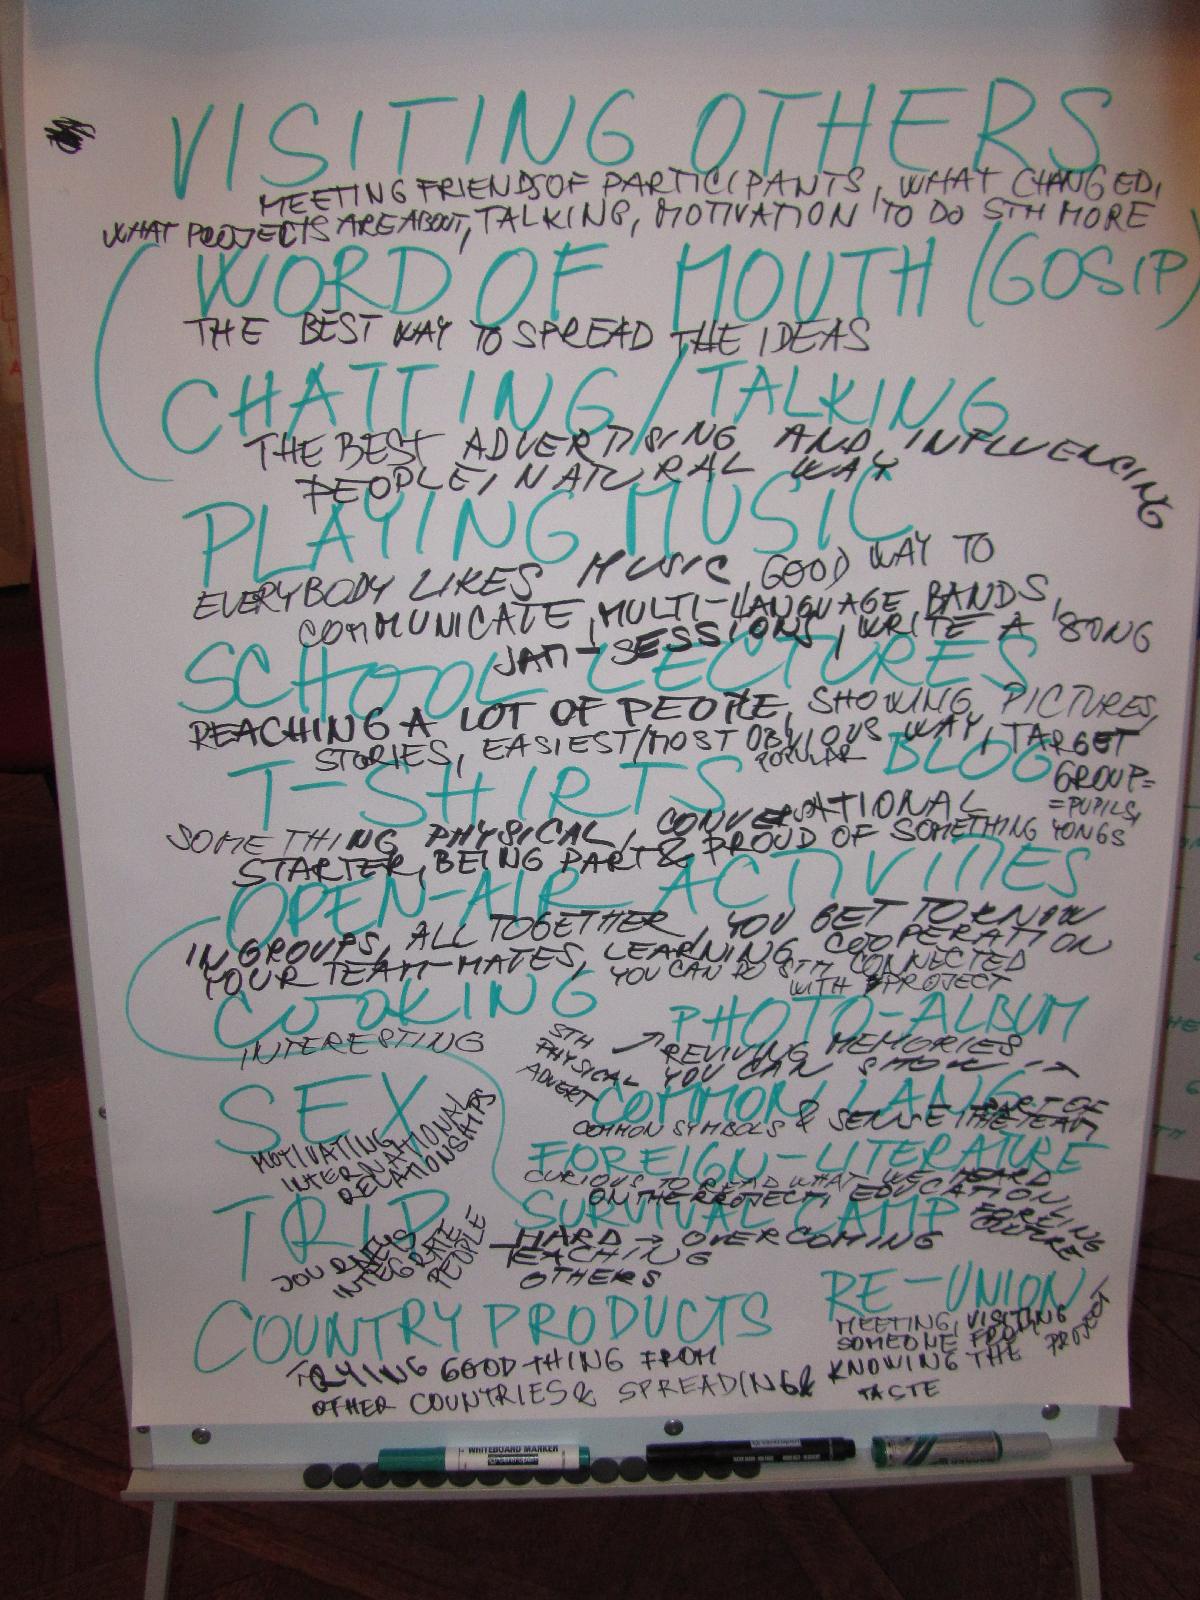 VISITING OTHERS
MEETING FRIENDS OF PARTICIPANTS, WHAT CHANGED,
WHAT PROJECTS ARE ABOUT, TALKING, MOTIVATION TO DO STH MORE
(WORD OF MOUTH (GOSIP)
THE BEST WAY TO SPREAD THE IDEAS
CHATTING/TALKING
THE BEST ADVERTISING AND INFLUENCING
PEOPLE, NATURAL WAY
PLAYING MUSIC
EVERYBODY LIKES MUSIC, GOOD WAY TO
COMMUNICATE, MULTI-LANGUAGE BANDS,
JAM-SESSIONS, WRITE A SONG
SCHOOL LECTURES
REACHING A LOT OF PEOPLE, SHOWING PICTURES,
STORIES, EASIEST/MOST OBVIOUS WAY, TARGET
POPULAR
GROUP=
=PUPILS,
YONGS
T-SHIRTS BLOG
SOMETHING PHYSICAL, CONVERSATIONAL
STARTER, BEING PART & PROUD OF SOMETHING
OPEN-AIR ACTIVITIES
IN GROUPS, ALL TOGETHER, YOU GET TO KNOW
YOUR TEAM-MATES, LEARNING COOPERATION
YOU CAN DO STH CONNECTED
WITH PROJECT
COOKING
INTERESTING
PHOTO-ALBUM
STH
PHYSICAL
ADVERT
REVIVING MEMORIES
YOU CAN SHOW
SEX
MOTIVATING
INTERNATIONAL
RELATIONSHIPS
COMMON LANG
COMMON SYMBOLS & SENSE PART OF THE TEAM
FOREIGN-LITERATURE
CURIOUS TO READ WHAT WE HEARD
ON THE PROJECT, EDUCATION,
CULTURE
TRIP
JOURNEYS
INTEGRATE
PEOPLE
SURVIVAL CAMP
HARD → OVERCOMING
TEACHING
OTHERS
COUNTRY PRODUCTS
TRYING GOOD THING FROM
OTHER COUNTRIES & SPREADING &
RE-UNION
MEETING, VISITING
SOMEONE FROM PROJECT
KNOWING THE
TASTE
WHITEBOARD MARKER